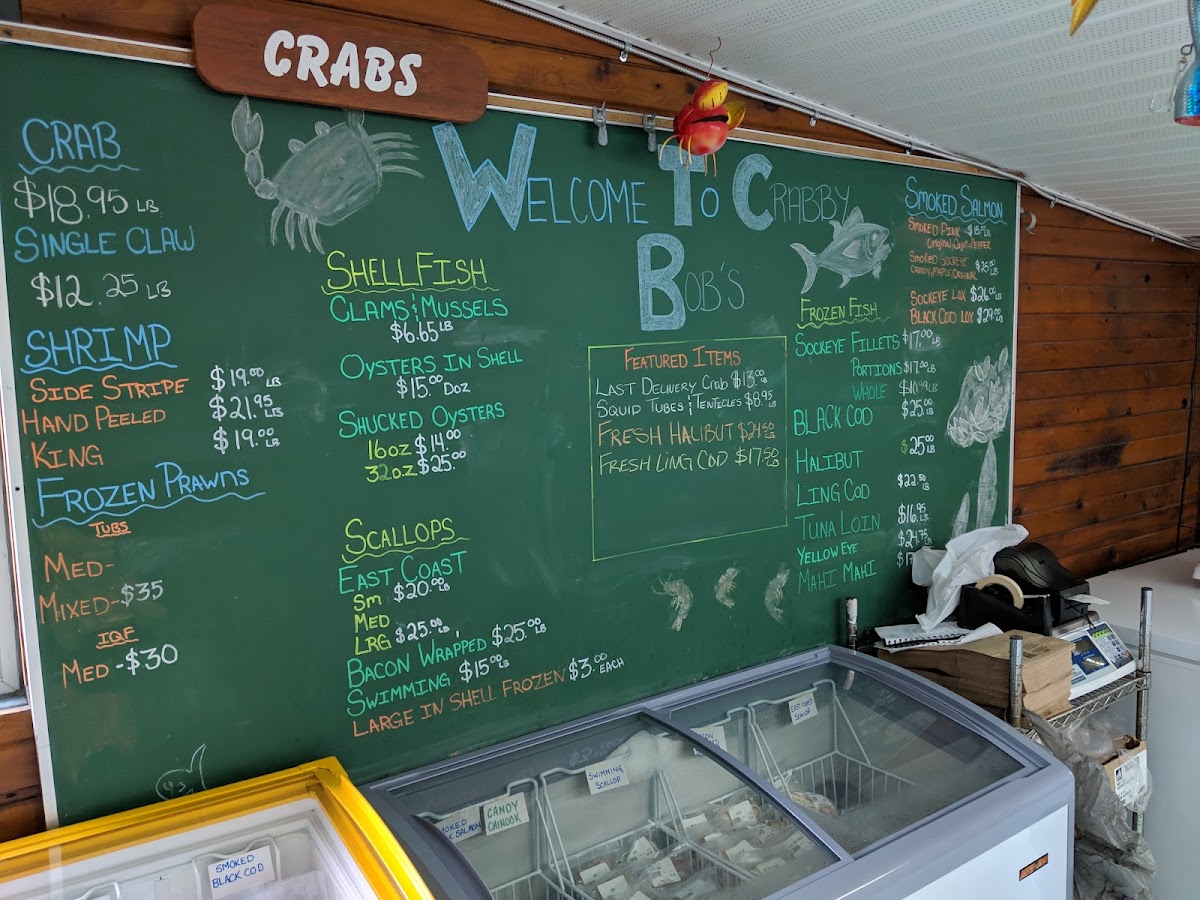 CRABS
CRAB
$18.95 LB
SINGLE CLAW
$12.25 LB
SHRIMP
SIDE STRIPE $19.00 LB
HAND PEELED $21.95 LB
KING $19.00 LB
FROZEN PRAWNS
TUBS
MED-
MIXED-$35
IQF
MED-$30
WELCOME TO CRABBY
BOB'S
SHELLFISH
CLAMS & MUSSELS
$6.65 LB
OYSTERS IN SHELL
$15.00 DOZ
SHUCKED OYSTERS
16oz $14.00
32oz $25.00
SCALLOPS
EAST COAST
Sm $20.00 LB
MED
LRG $25.00 LB
BACON WRAPPED $25.00 LB
SWIMMING $15.00 LB
LARGE IN SHELL FROZEN $3.00 EACH
FEATURED ITEMS
LAST DELIVERY CRAB $13.00 LB
SQUID TUBES & TENTICLES $8.95 LB
FRESH HALIBUT $24.50 LB
FRESH LING COD $17.50 LB
SMOKED SALMON
SMOKED PINK $15.00 LB
ORIGINAL, PEPPER
SMOKED SOCKEYE $25.00 LB
CANDY, MAPLE, ORIGINAL
SOCKEYE LOX $26.00 LB
BLACK COD LOX $29.00 LB
FROZEN FISH
SOCKEYE FILLETS $17.00 LB
PORTIONS $17.00 LB
WHOLE $10.99 LB
BLACK COD $25.00 LB
HALIBUT $25.00 LB
LING COD $22.50 LB
TUNA LOIN $16.95 LB
YELLOW EYE $24.75 LB
MAHI MAHI
SMOKED
BLACK COD
CANDY
CHINOOK
SWIMMING
SCALLOP
EAST COAST
SCALLOP